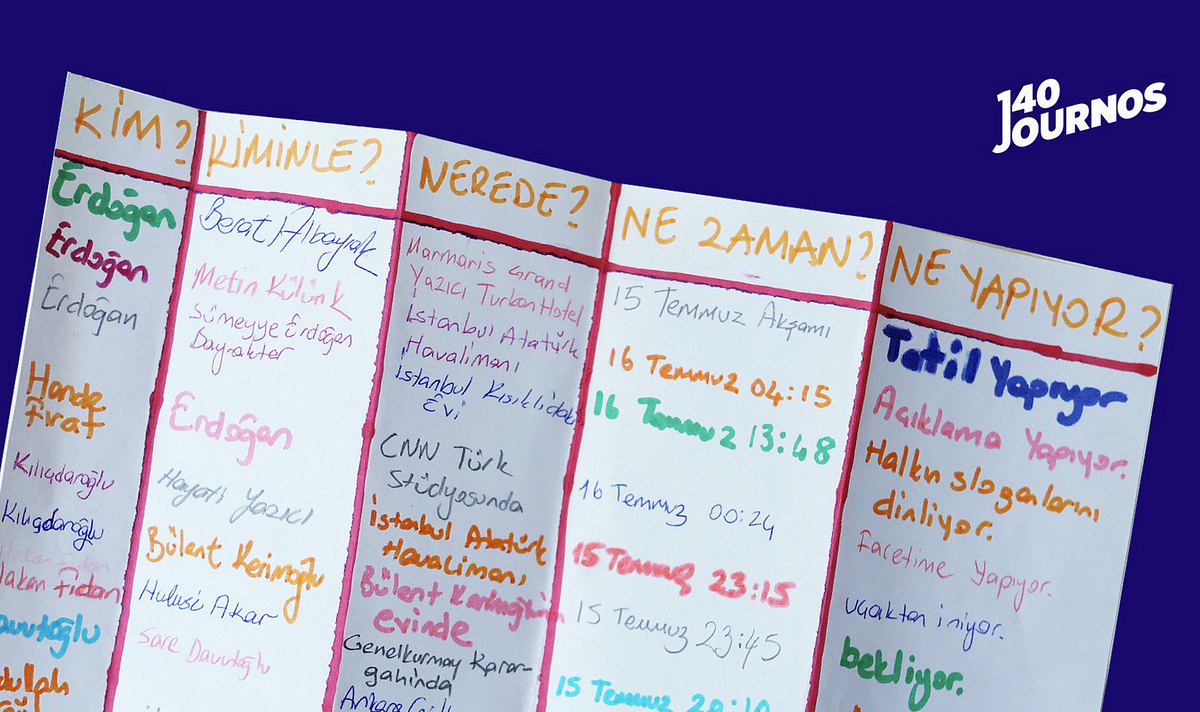 140
JOURNOS
KİM?
Erdoğan
Erdoğan
Erdoğan
Hande
Fırat
Kılıçdaroğlu
Kılıçdaroğlu
Hakan Fidan
KİMİNLE?
Berat Albayrak
Metin Külünk
Sümeyye Erdoğan
Bayraktar
Erdoğan
Hayati Yazıcı
Bülent Kerimoğlu
Hulusi Akar
Sare Davutoğlu
NEREDE?
Marmaris Grand
Yazıcı Turban Hotel
İstanbul Atatürk
Havalimanı
İstanbul Kısıklıdaki
Evi
CNN Türk
Stüdyosunda
İstanbul Atatürk
Havalimanı
Bülent Kerimoğlunun
evinde
Genelkurmay Karar-
gahında
Ankara
NE ZAMAN?
15 Temmuz Akşamı
16 Temmuz 04:15
16 Temmuz 13:48
16 Temmuz 00:24
15 Temmuz 23:15
15 Temmuz 23:45
15 Temmuz
NE YAPIYOR?
Tatil Yapıyor
Açıklama Yapıyor.
Halkın sloganlarını
dinliyor.
Facetime Yapıyor.
uçaktan iniyor.
bekliyor.